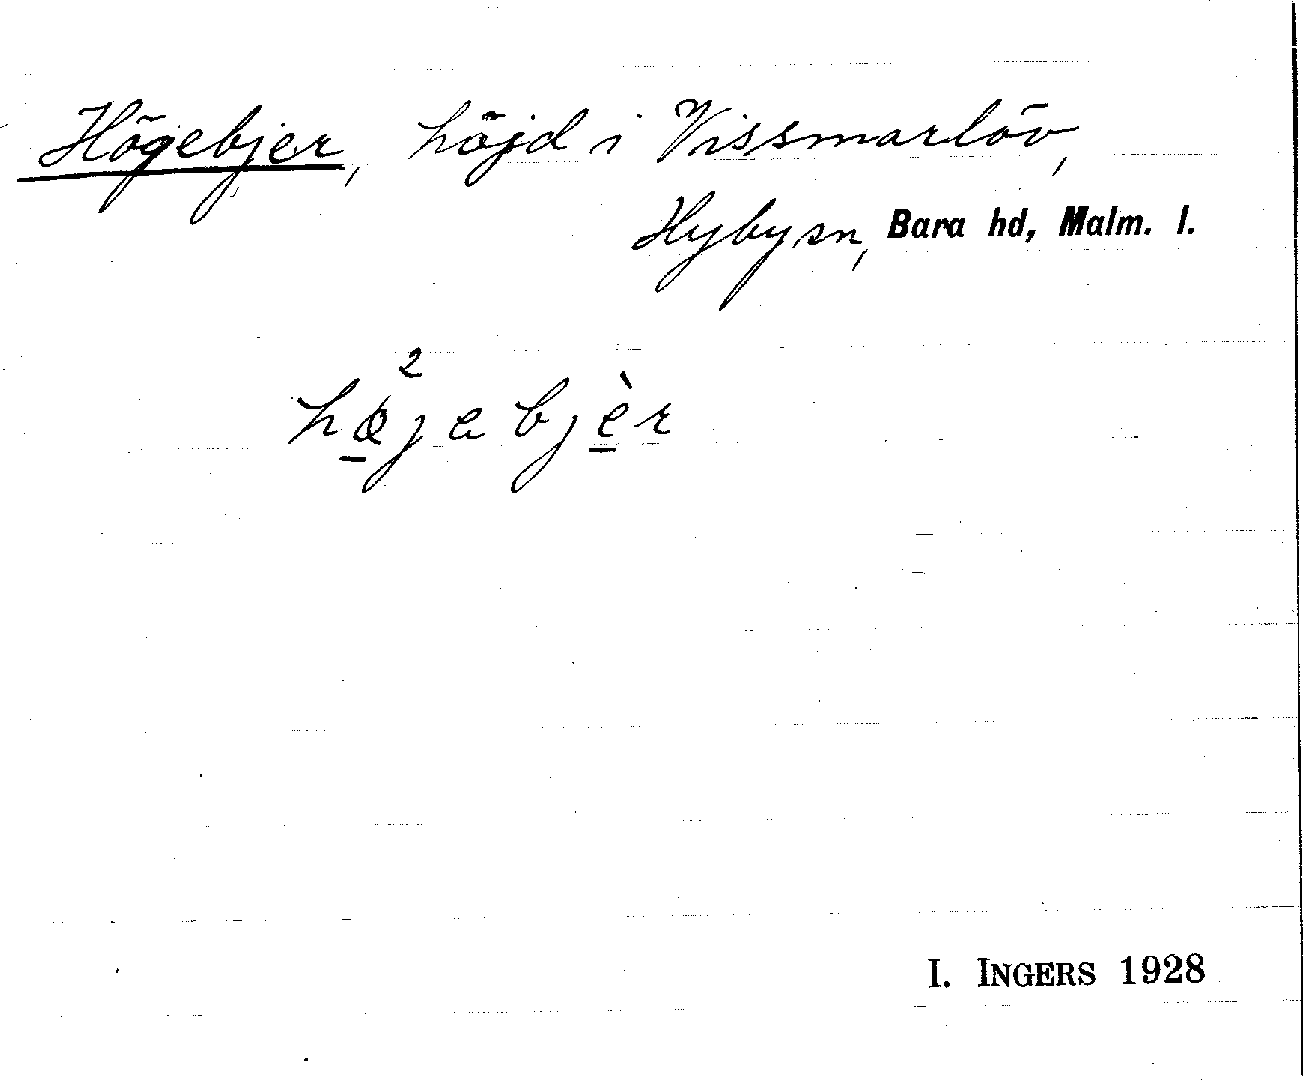 Högebjer, höjd i Vissmarlöv,
Hyby sn, Bara hd, Malm. l.
hø̱²jebjè̱r
I. INGERS 1928